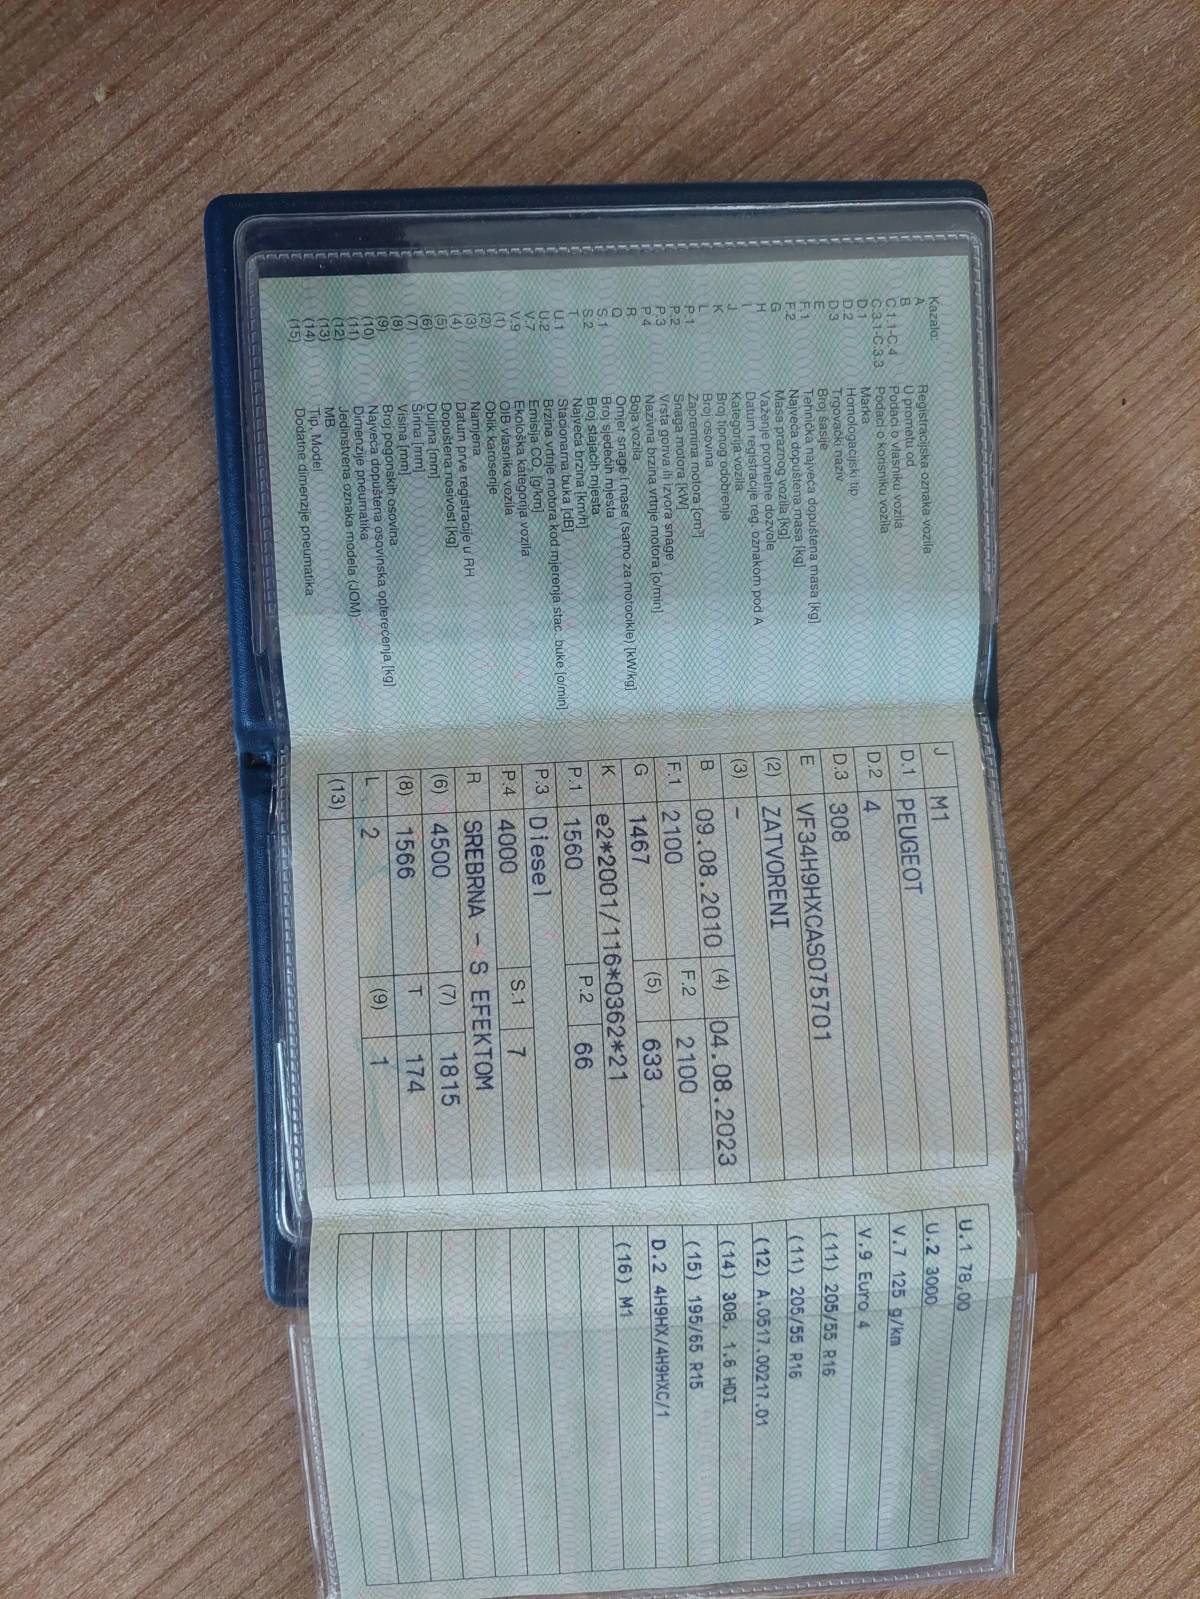 Kazalo:
A Registracijska oznaka vozila
B U prometu od
C.1.1-C.4 Podaci o vlasniku vozila
C.3.1-C.3.3 Podaci o korisniku vozila
D.1 Marka
D.2 Homologacijski tip
D.3 Trgovački naziv
E Broj šasije
F.1 Tehnička najveća dopuštena masa [kg]
F.2 Najveća dopuštena masa [kg]
G Masa praznog vozila [kg]
H Važenje prometne dozvole
I Datum registracije reg. oznakom pod A
J Kategorija vozila
K Broj tipnog odobrenja
L Broj osovina
P.1 Zapremina motora [cm³]
P.2 Snaga motora [kW]
P.3 Vrsta goriva ili izvora snage
P.4 Nazivna brzina vrtnje motora [o/min]
R Boja vozila
Q Omjer snage i mase (samo za motocikle) [kW/kg]
S.1 Broj sjedećih mjesta
S.2 Broj stajaćih mjesta
T Najveća brzina [km/h]
U.1 Stacionarna buka [dB]
U.2 Brzina vrtnje motora kod mjerenja stac. buke [o/min]
V.7 Emisija CO₂ [g/km]
V.9 Ekološka kategorija vozila
(1) OIB vlasnika vozila
(2) Oblik karoserije
(3) Namjena
(4) Datum prve registracije u RH
(5) Dopuštena nosivost [kg]
(6) Duljina [mm]
(7) Širina [mm]
(8) Visina [mm]
(9) Broj pogonskih osovina
(10) Najveća dopuštena osovinska opterećenja [kg]
(11) Dimenzije pneumatika
(12) Jedinstvena oznaka modela (JOM)
(13) MB
(14) Tip, Model
(15) Dodatne dimenzije pneumatika
J M1
D.1 PEUGEOT
D.2 4
D.3 308
E VF34H9HXCAS075701
(2) ZATVORENI
(3) -
B 09.08.2010 (4) 04.08.2023
F.1 2100 F.2 2100
G 1467 (5) 633
K e2*2001/116*0362*21
P.1 1560 P.2 66
P.3 Diesel
P.4 4000 S.1 7
R SREBRNA - S EFEKTOM
(6) 4500 (7) 1815
(8) 1566 T 174
L 2 (9) 1
(13)
U.1 78,00
U.2 3000
V.7 125 g/km
V.9 Euro 4
(11) 205/55 R16
(11) 205/55 R16
(12) A.0517.00217.01
(14) 308, 1.6 HDI
(15) 195/65 R15
D.2 4H9HX/4H9HXC/1
(16) M1